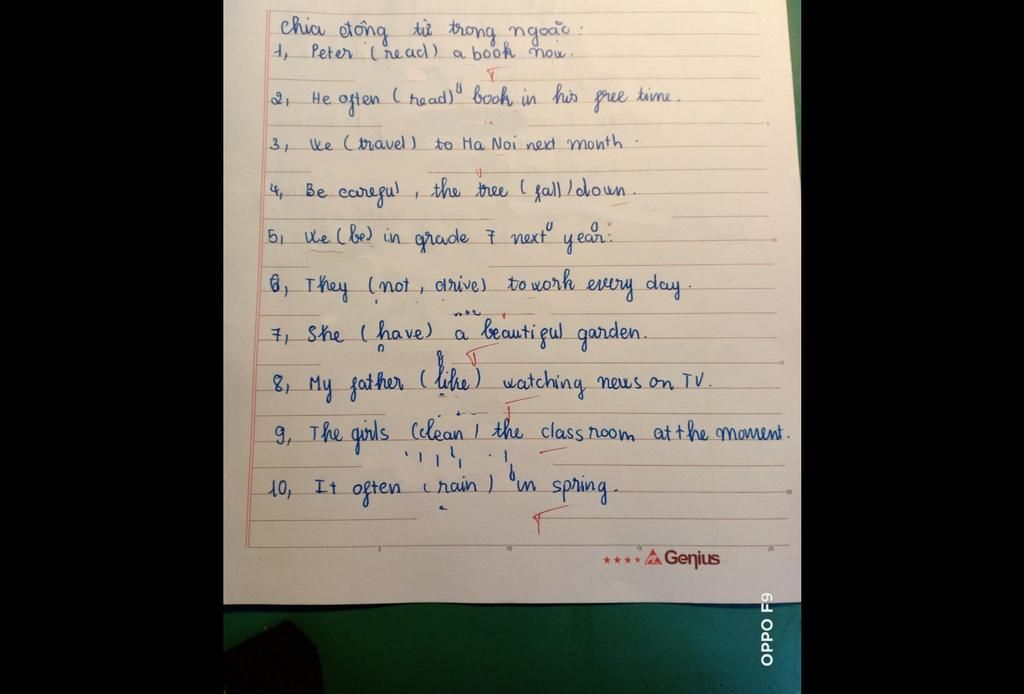 Chia động từ trong ngoặc:
1, Peter (read) a book now.
2, He often (read) book in his free time.
3, We (travel) to Ha Noi next month.
4, Be careful, the tree (fall) down.
5, We (be) in grade 7 next year:
6, They (not, drive) to work every day.
7, She (have) a beautiful garden.
8, My father (like) watching news on TV.
9, The girls (clean) the classroom at the moment.
10, It often (rain) in spring.
Genius
OPPO F9